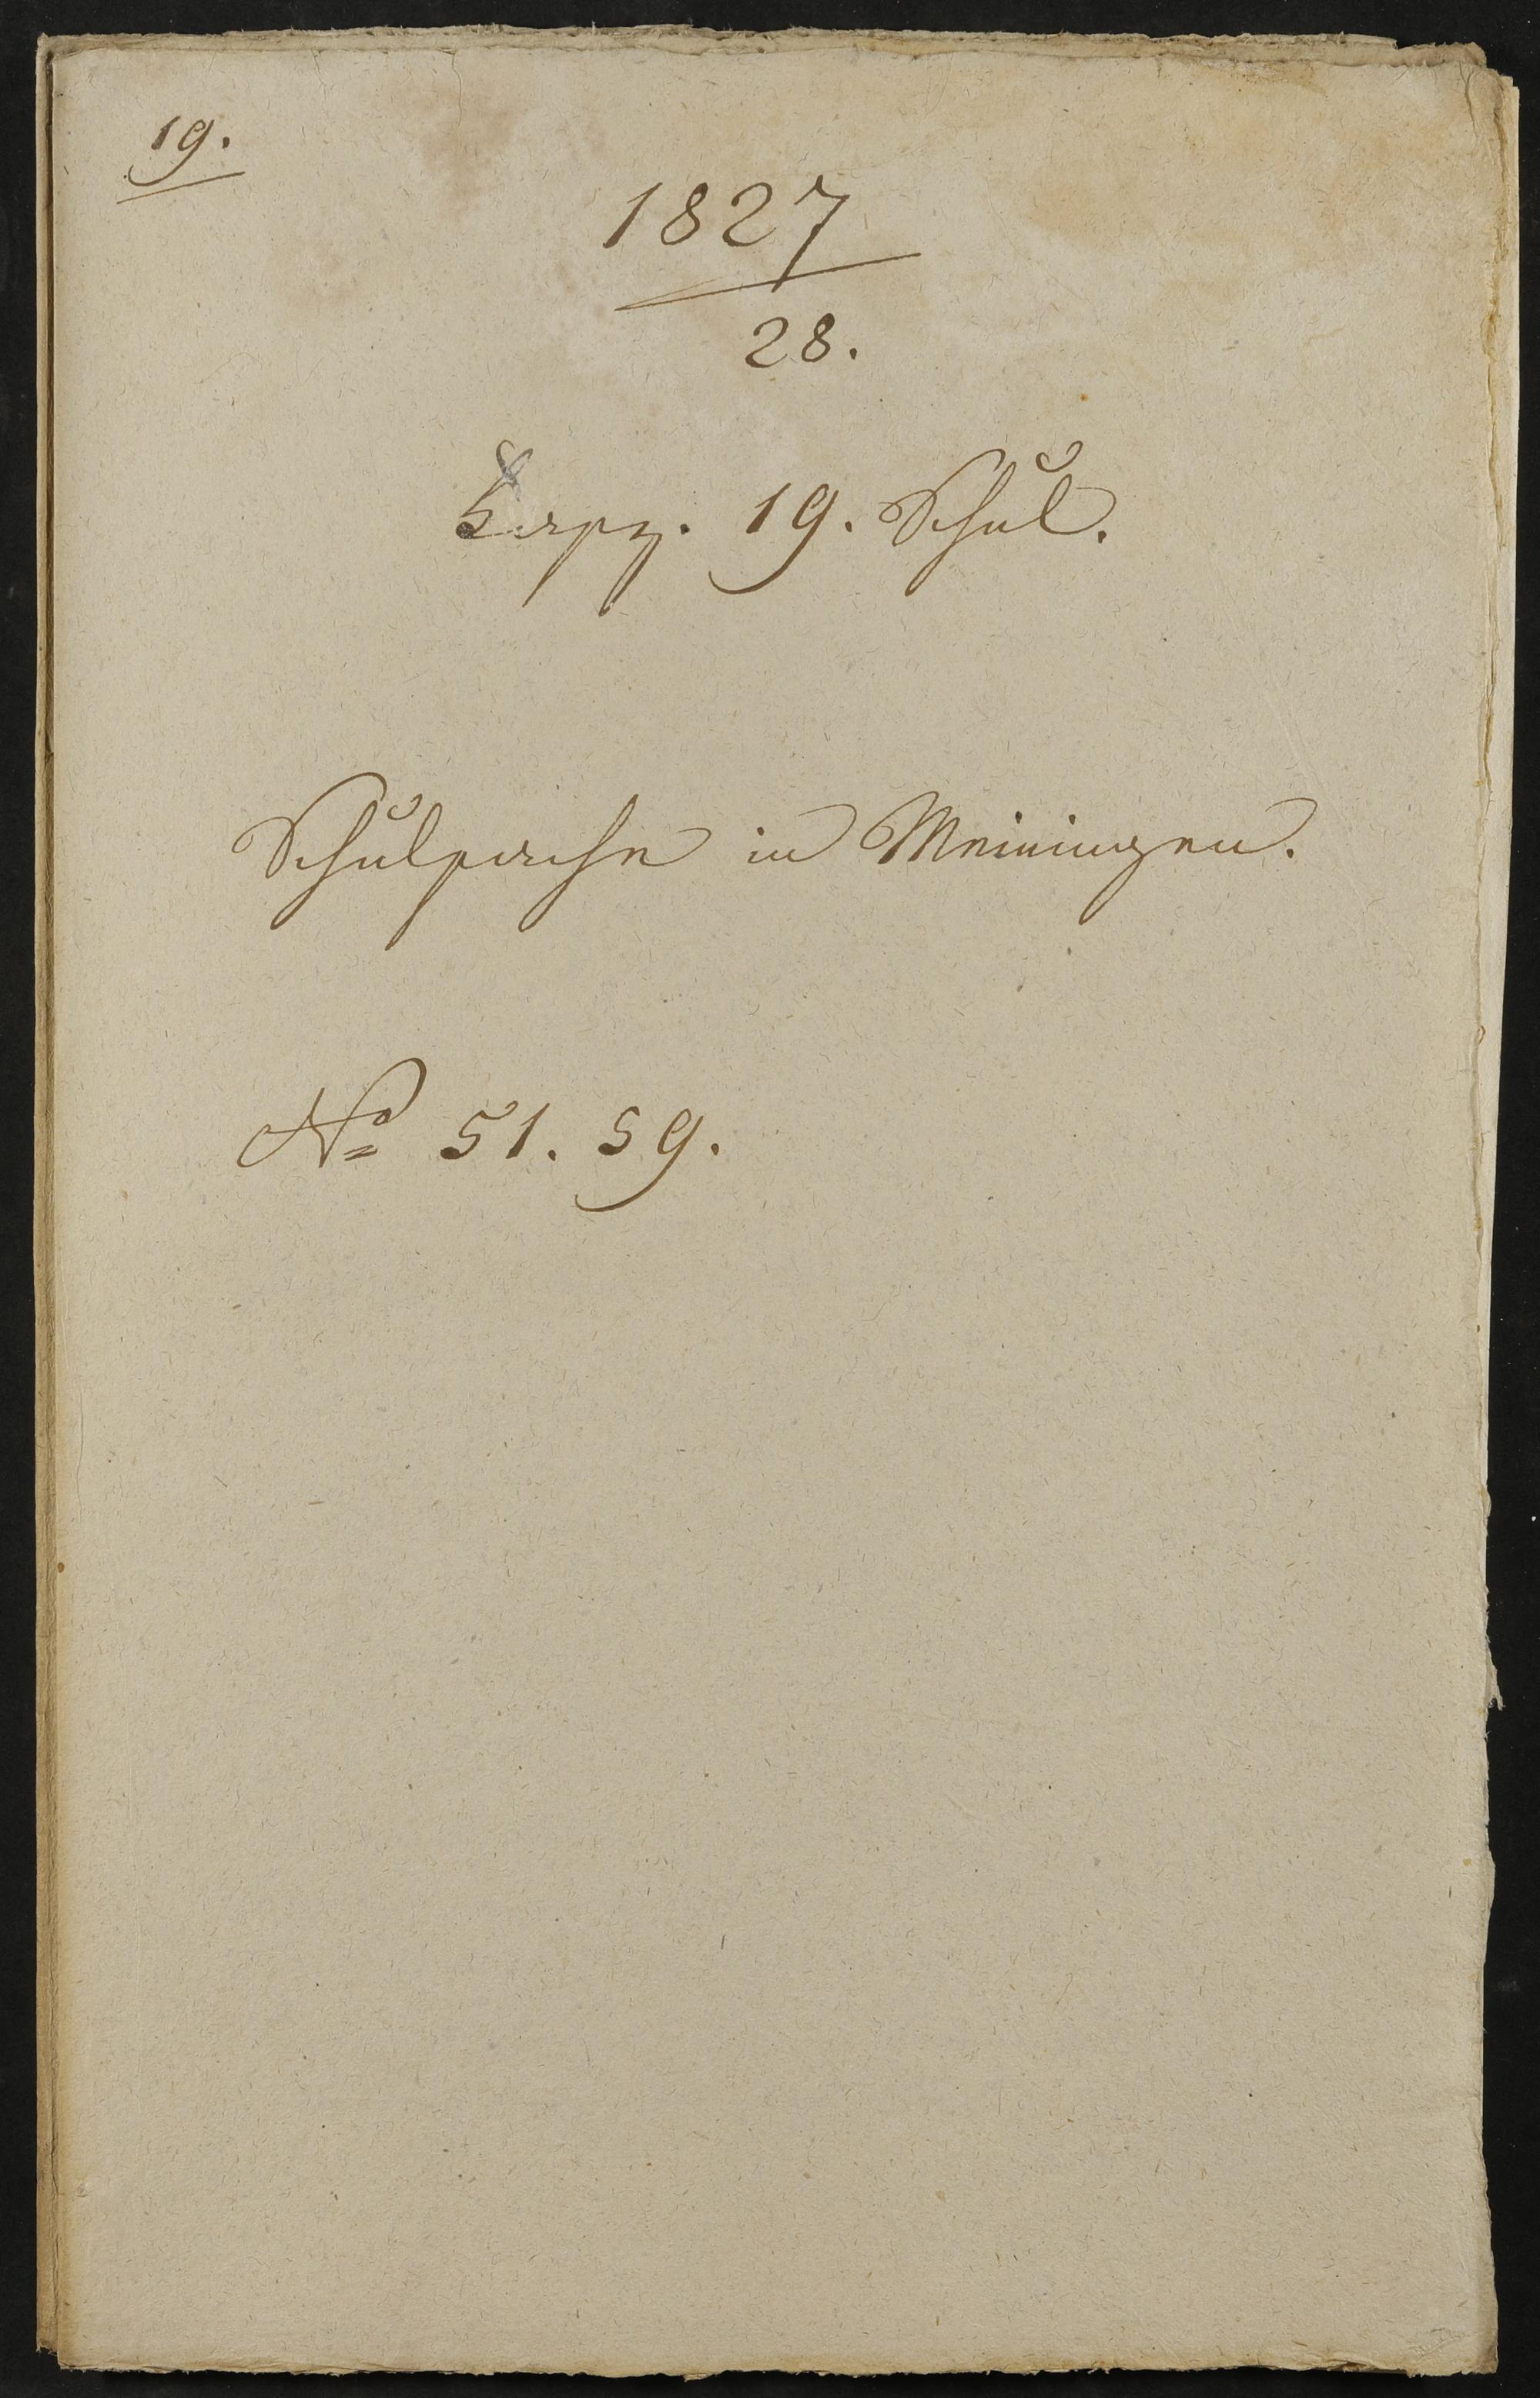 19.
1827
28.
Fasz. 19. Schul.
Schulsache in Meiningen.
No 51. 59.